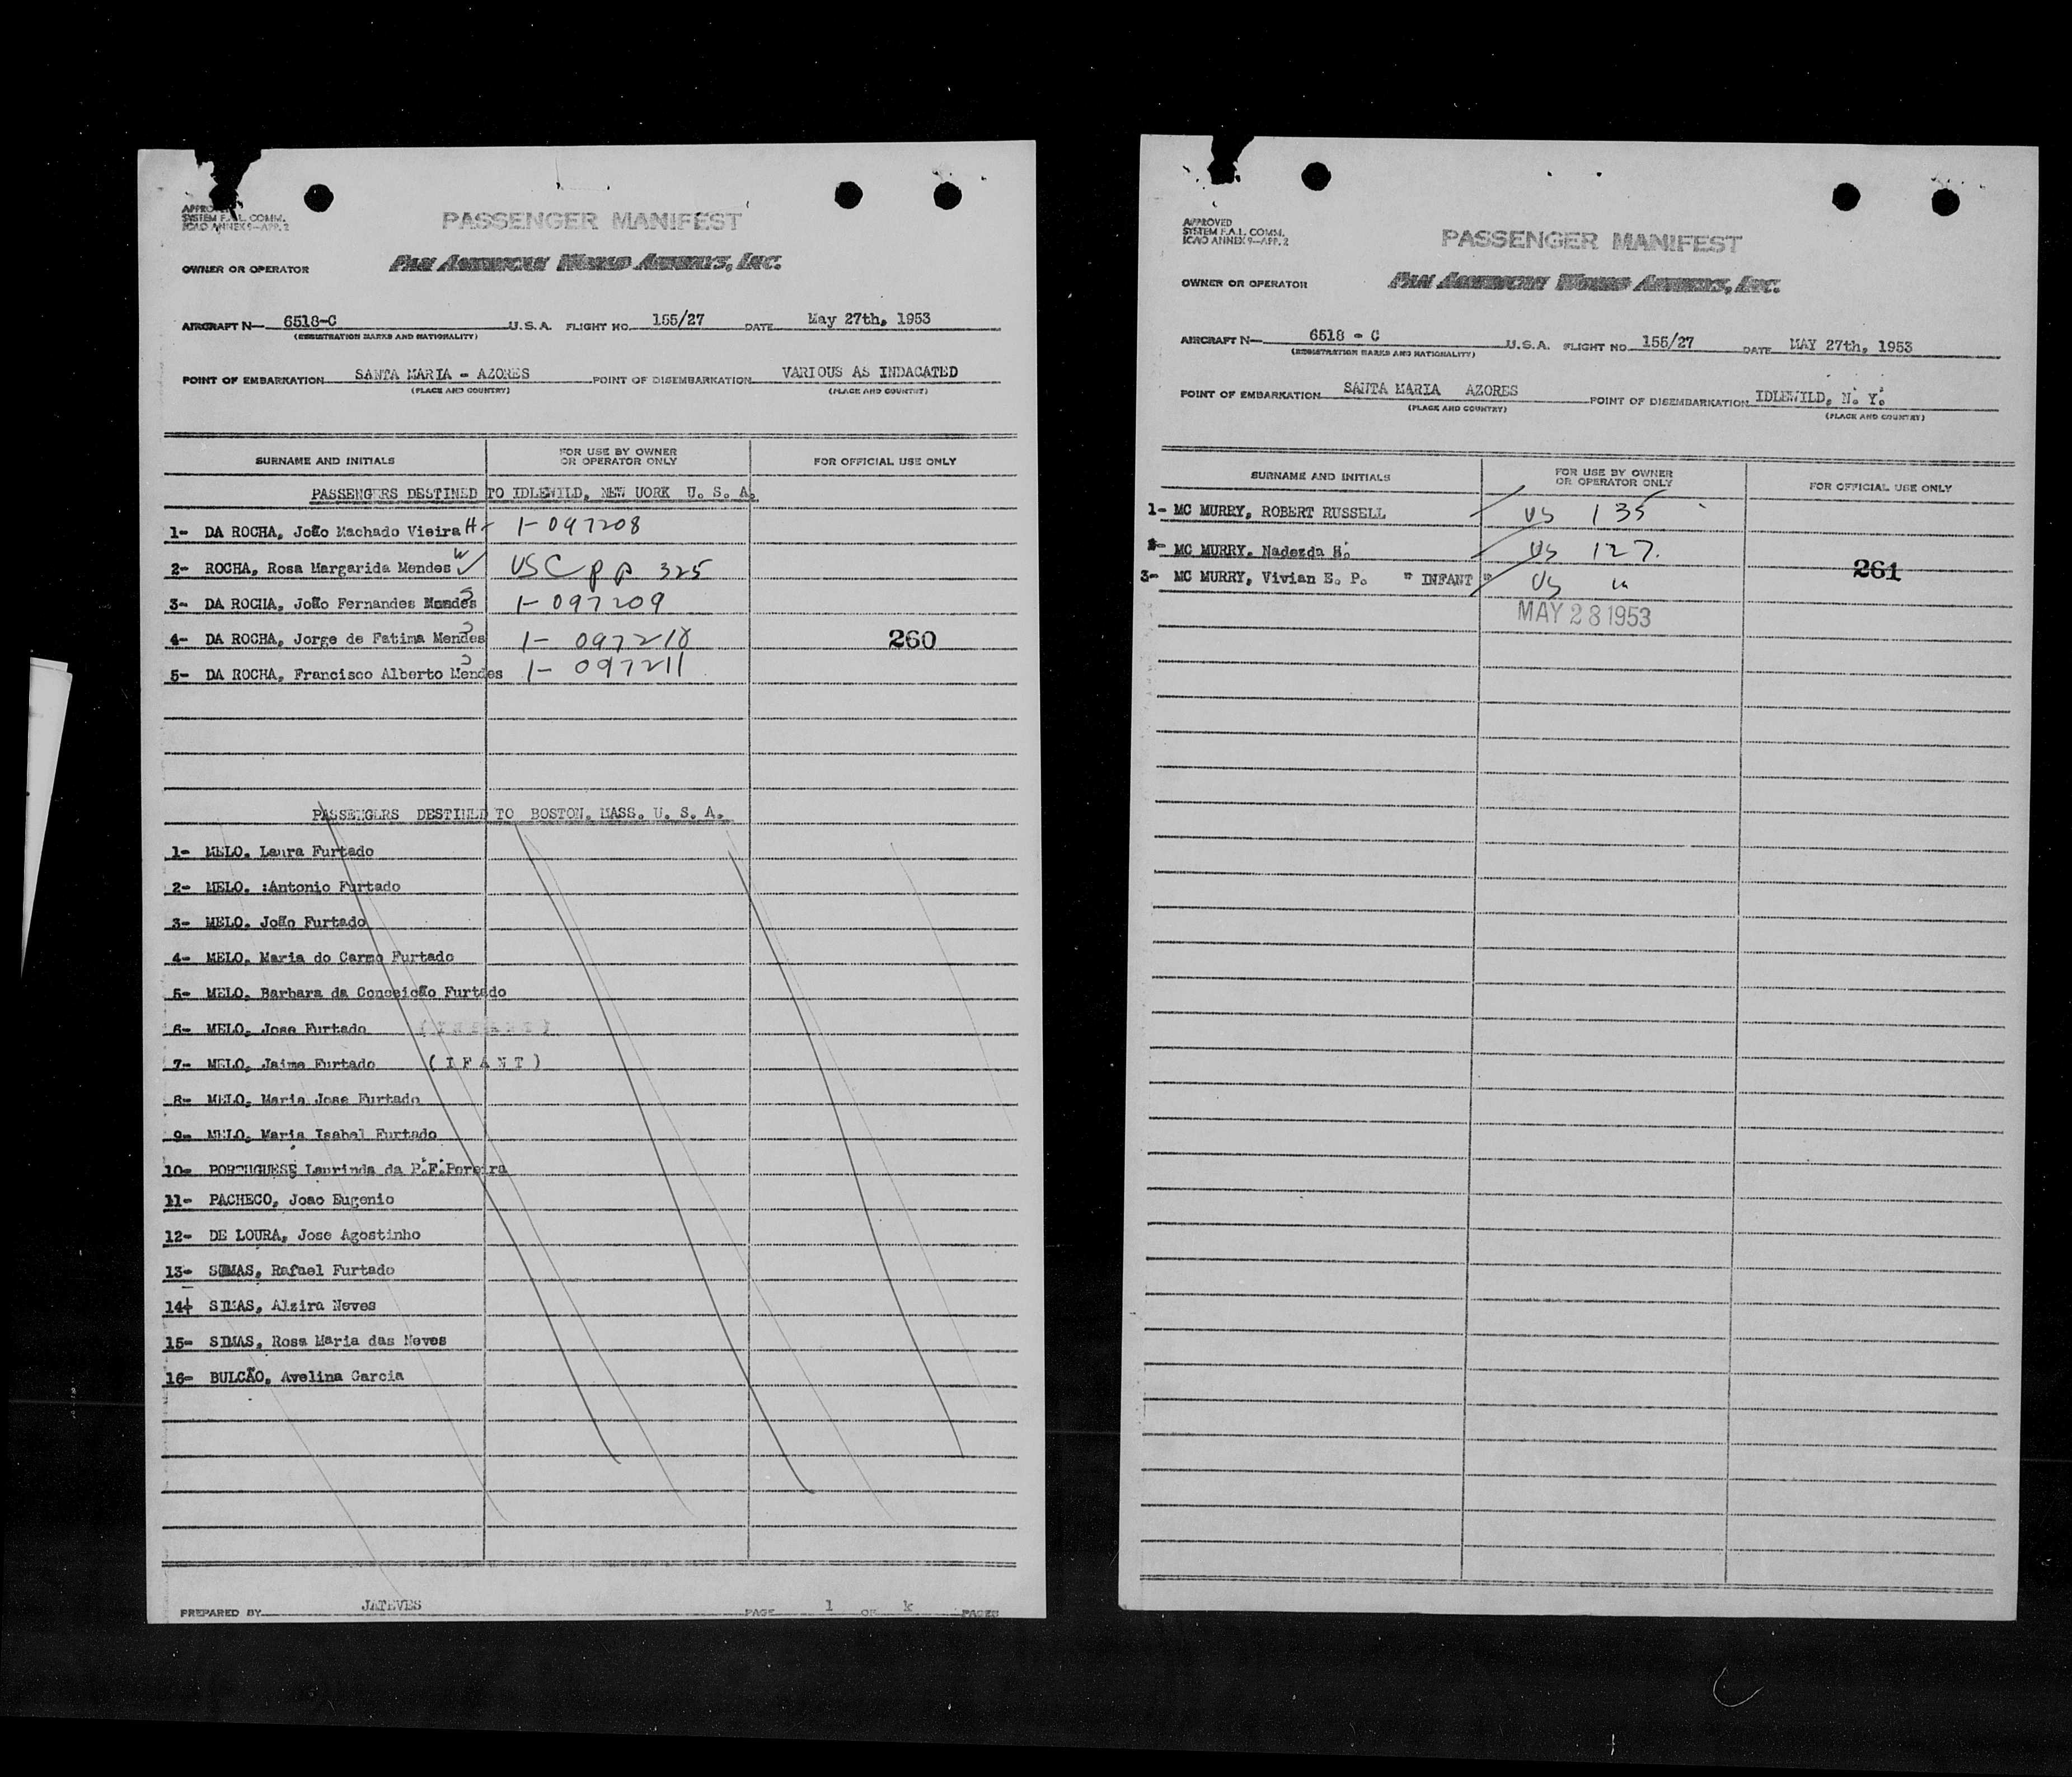 APPROVED
SYSTEM F.A.L. COMM.
ICAO ANNEX 9-APP. 2
PASSENGER MANIFEST
PAN AMERICAN WORLD AIRWAYS, INC.
OWNER OR OPERATOR
AIRCRAFT N- 6518-C U.S.A. FLIGHT NO. 155/27 DATE May 27th, 1953
(REGISTRATION MARKS AND NATIONALITY)
POINT OF EMBARKATION SANTA MARIA - AZORES POINT OF DISEMBARKATION VARIOUS AS INDACATED
(PLACE AND COUNTRY) (PLACE AND COUNTRY)
SURNAME AND INITIALS FOR USE BY OWNER OR OPERATOR ONLY FOR OFFICIAL USE ONLY
PASSENGERS DESTINED TO IDLEWILD, NEW UORK U. S. A.
1- DA ROCHA, João Machado Vieira H- 1-097208
2- ROCHA, Rosa Margarida Mendes W USC pp 325
3- DA ROCHA, João Fernandes Mendes S 1-097209
4- DA ROCHA, Jorge de Fatima Mendes S 1- 097210 260
5- DA ROCHA, Francisco Alberto Mendes S 1- 097211
PASSENGERS DESTINED TO BOSTON, MASS. U. S. A.
1- MELO. Laura Furtado
2- MELO. :Antonio Furtado
3- MELO. João Furtado
4- MELO. Maria do Carmo Furtado
5- MELO. Barbara da Conceição Furtado
6- MELO. Jose Furtado
7- MELO, Jaime Furtado ( I F A N T )
8- MELO, Maria Jose Furtado
9- MELO, Maria Isabel Furtado
10- PORTUGUESE Laurinda da P.F.Pereira
11- PACHECO, Joao Eugenio
12- DE LOURA, Jose Agostinho
13- SIMAS, Rafael Furtado
14- SIMAS, Alzira Neves
15- SIMAS, Rosa Maria das Neves
16- BULCÃO, Avelina Garcia
PREPARED BY JATEVES PAGE 1 OF k PAGES
APPROVED
SYSTEM F.A.L. COMM.
ICAO ANNEX 9-APP. 2
PASSENGER MANIFEST
PAN AMERICAN WORLD AIRWAYS, INC.
OWNER OR OPERATOR
AIRCRAFT N- 6518 - C U.S.A. FLIGHT NO. 155/27 DATE MAY 27th, 1953
(REGISTRATION MARKS AND NATIONALITY)
POINT OF EMBARKATION SANTA MARIA AZORES POINT OF DISEMBARKATION IDLEWILD, N. Y.
(PLACE AND COUNTRY) (PLACE AND COUNTRY)
SURNAME AND INITIALS FOR USE BY OWNER OR OPERATOR ONLY FOR OFFICIAL USE ONLY
1- MC MURRY, ROBERT RUSSELL US 135
2- MC MURRY. Nadezda H. US 127.
3- MC MURRY, Vivian E. P. " INFANT " US " 261
MAY 28 1953